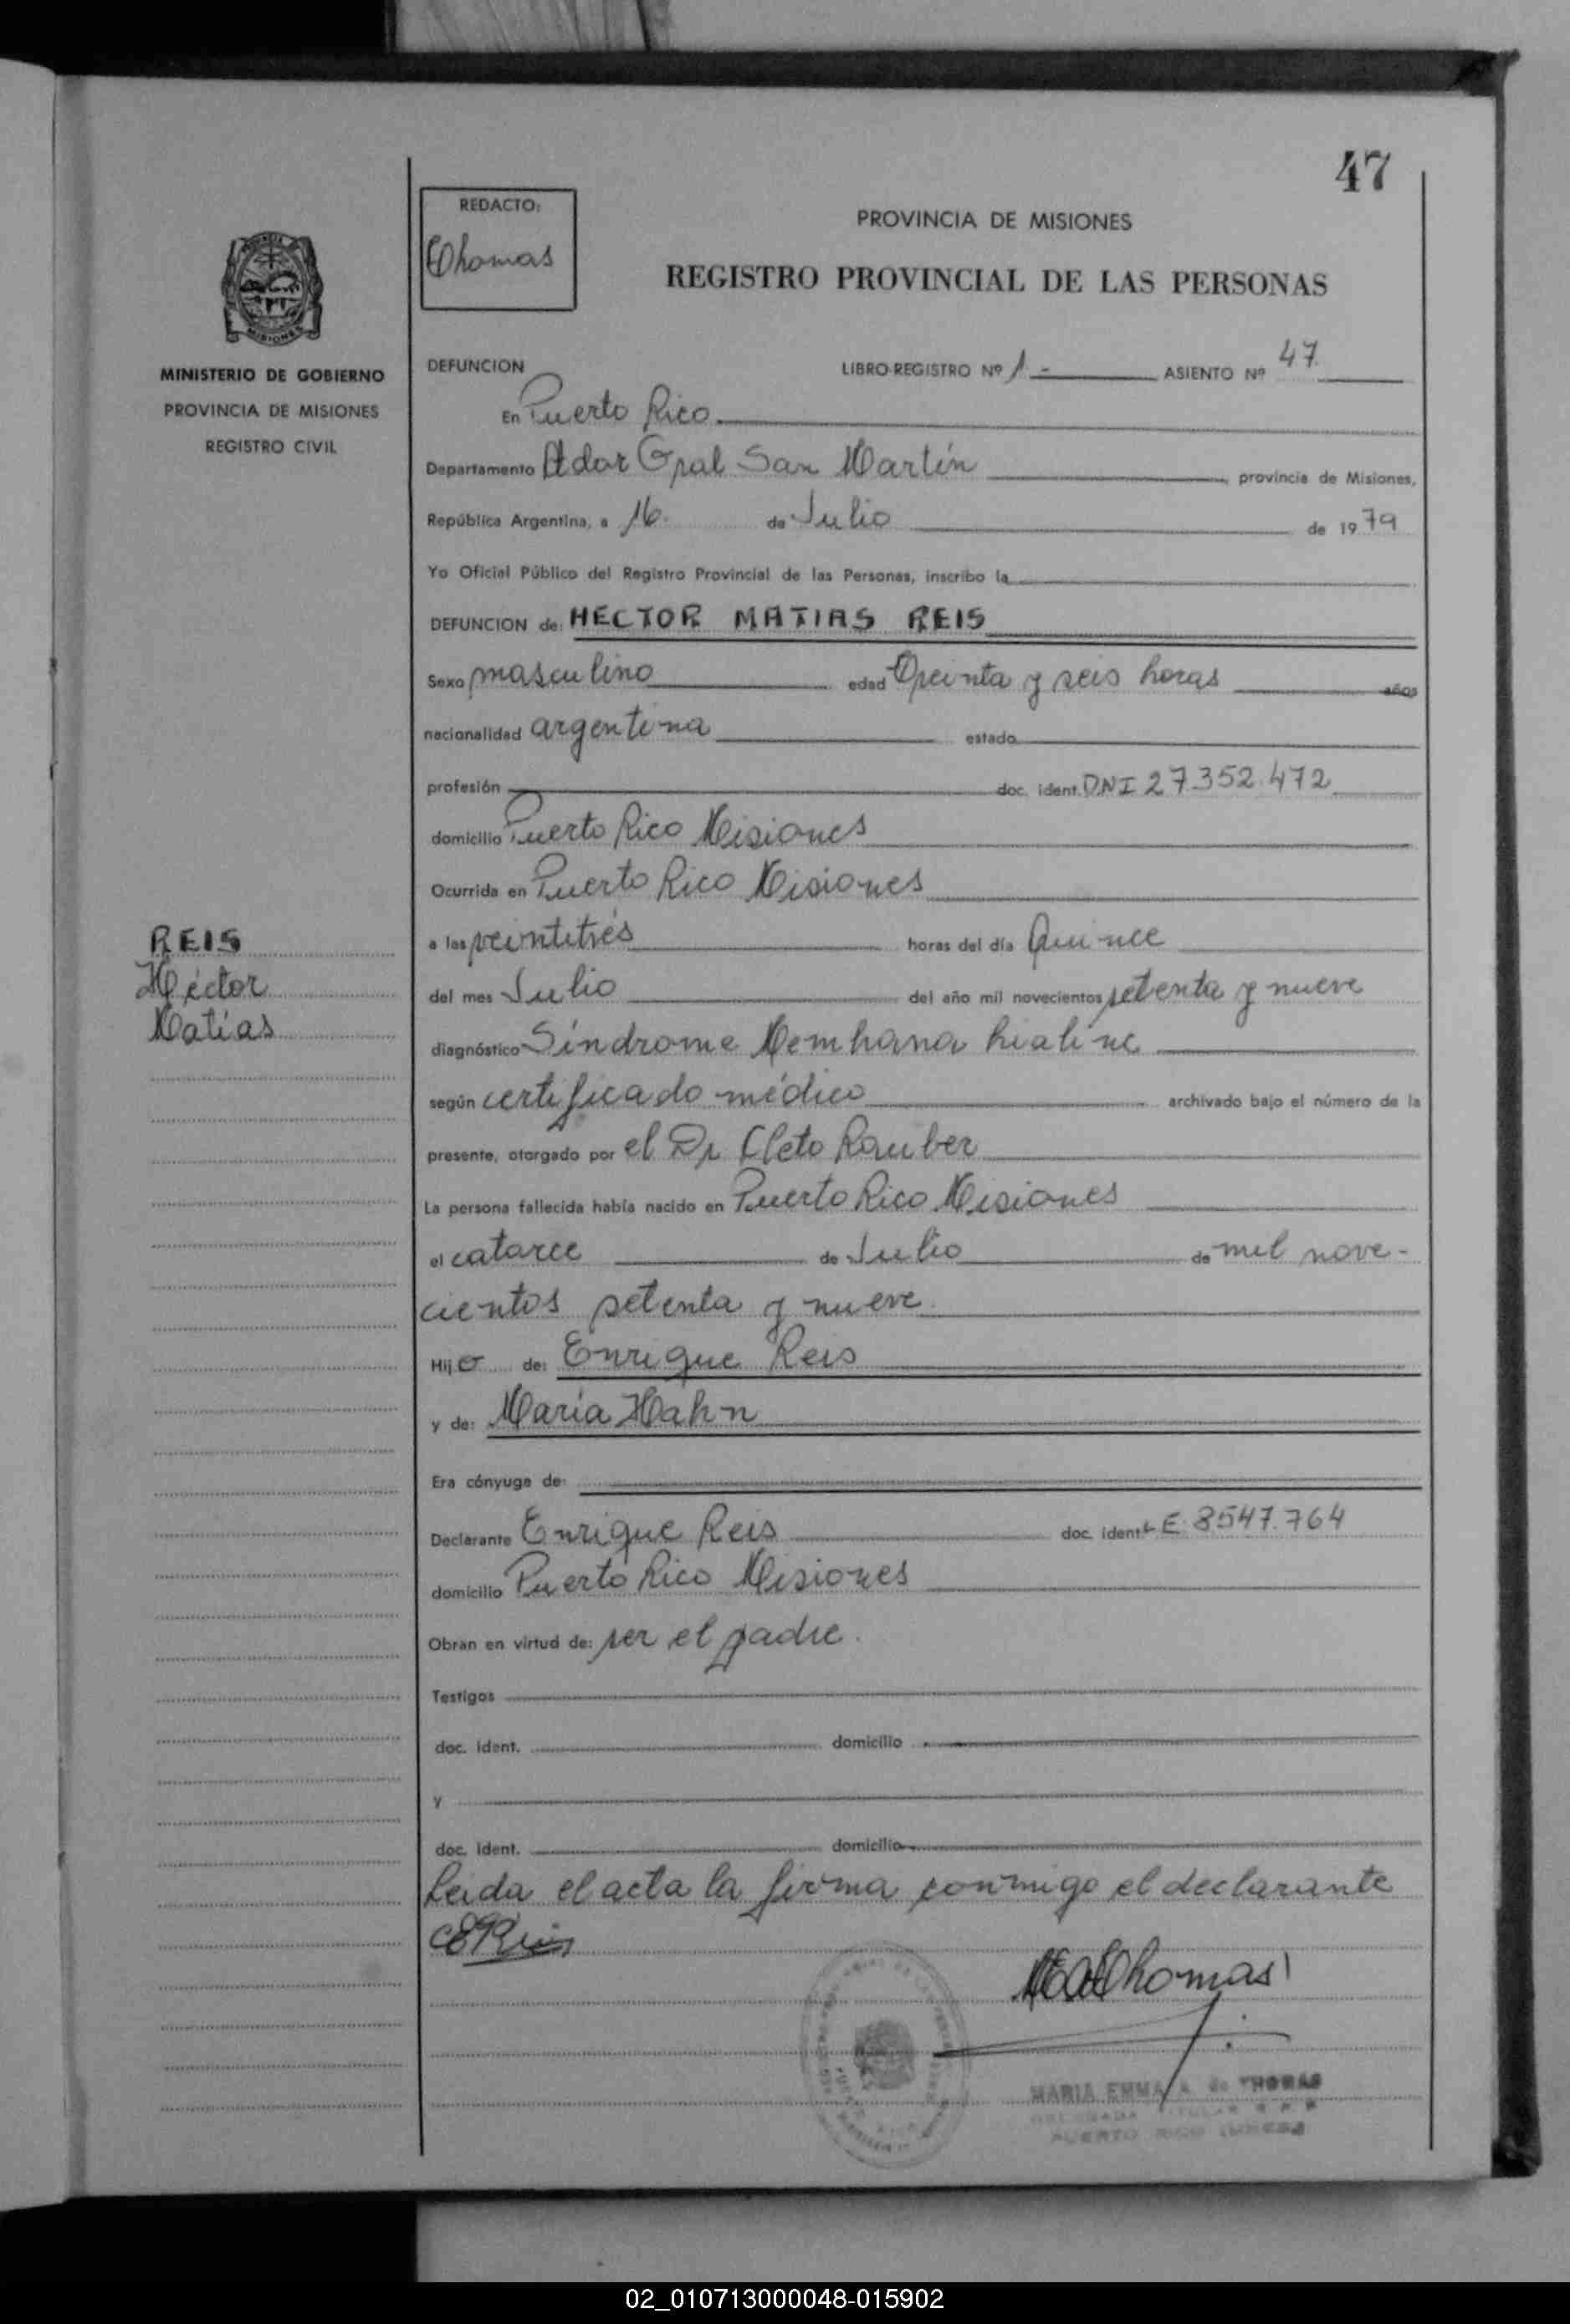 47
REDACTO:
Thomas
PROVINCIA DE MISIONES
REGISTRO PROVINCIAL DE LAS PERSONAS
MISIONES
MINISTERIO DE GOBIERNO
PROVINCIA DE MISIONES
REGISTRO CIVIL
DEFUNCION LIBRO-REGISTRO Nº 1 - ASIENTO Nº 47
En Puerto Rico
Departamento Ldor Gral San Martín, provincia de Misiones,
República Argentina, a 16 de Julio de 1979
Yo Oficial Público del Registro Provincial de las Personas, inscribo la
DEFUNCION de: HECTOR MATIAS REIS
Sexo masculino edad Treinta y seis horas años
nacionalidad argentina estado
profesión doc. ident. DNI 27.352.472
domicilio Puerto Rico Misiones
Ocurrida en Puerto Rico Misiones
a las veintitrés horas del día Quince
del mes Julio del año mil novecientos setenta y nueve
REIS
Héctor
Matías
diagnóstico Síndrome Membrana hialina
según certificado médico archivado bajo el número de la
presente, otorgado por el Dr Cleto Rauber
La persona fallecida había nacido en Puerto Rico Misiones
el catorce de Julio de mil nove-
cientos setenta y nueve
Hijo de: Enrique Reis
y de: María Hahn
Era cónyuge de:
Declarante Enrique Reis doc. ident. LE 8547.764
domicilio Puerto Rico Misiones
Obran en virtud de: ser el padre.
Testigos
doc. ident. domicilio
y
doc. ident. domicilio
Leida el acta la firma conmigo el declarante
MARIA EMMA A. de THOMAS
PUERTO RICO
02_010713000048-015902